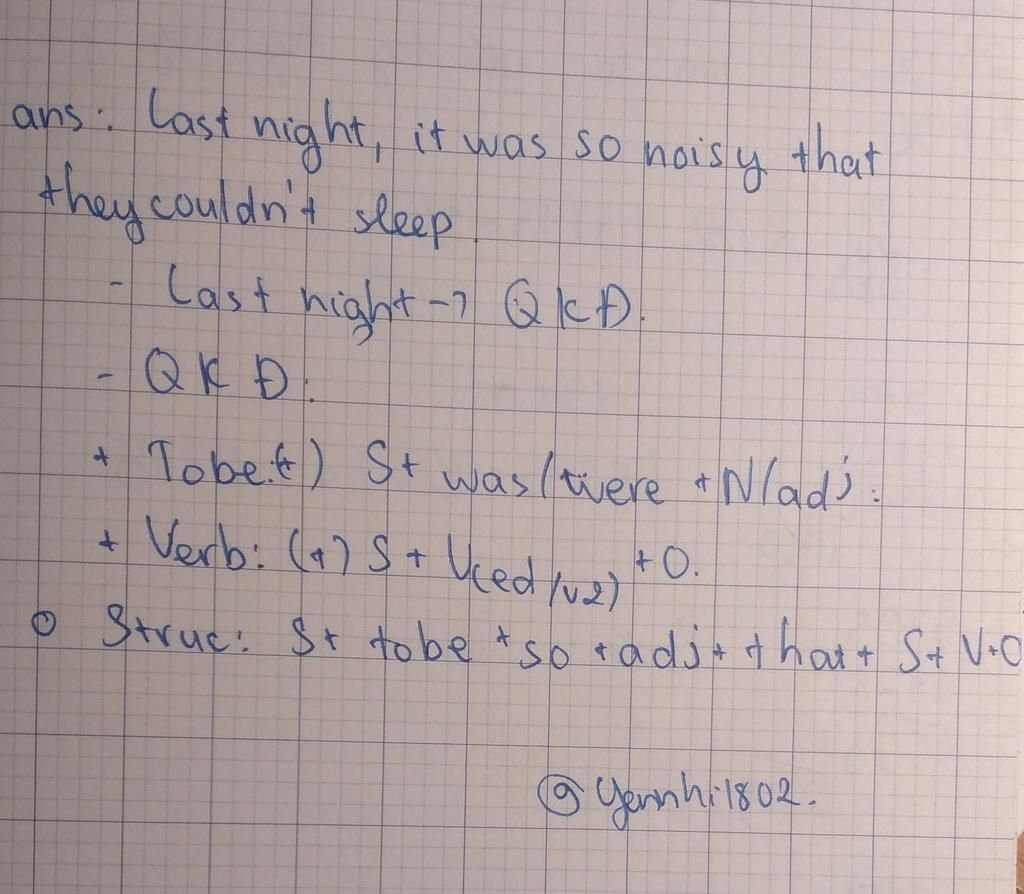 ans: Last night, it was so noisy that
they couldn't sleep.
- Last night -> QKĐ.
- QKĐ:
+ Tobe:(+) S+ was/were +N/adj.
+ Verb: (+) S + V(ed/v2) +O.
o Struc: S+ tobe +so +adj+ that+ S+ V+O
@yennhi1802.